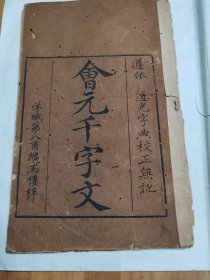 遵依 道光字典校正無訛
會元千字文
羊城第八甫麟玉樓梓